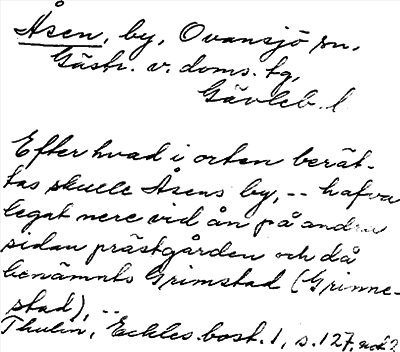 Åsen, by, Ovansjö sn,
Gästr. v. doms. tg,
Gävleb. l
Efter hvad i orten berät-
tas skulle Åsens by, -- hafva
legat nere vid ån på andra
sidan prästgården och då
benämnts Grimstad (Grinne-
stad), --
Thulin, Eckles. bost. 1, s. 127, not 2.